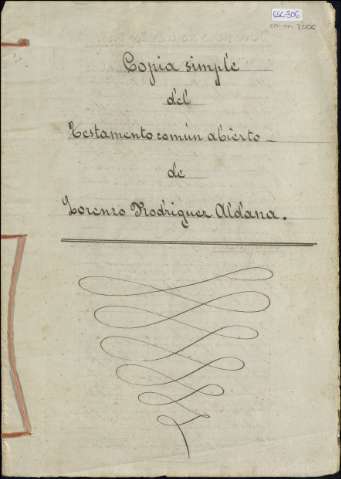 Copia simple
del
Testamento común abierto
de
Lorenzo Rodriguez Aldana.